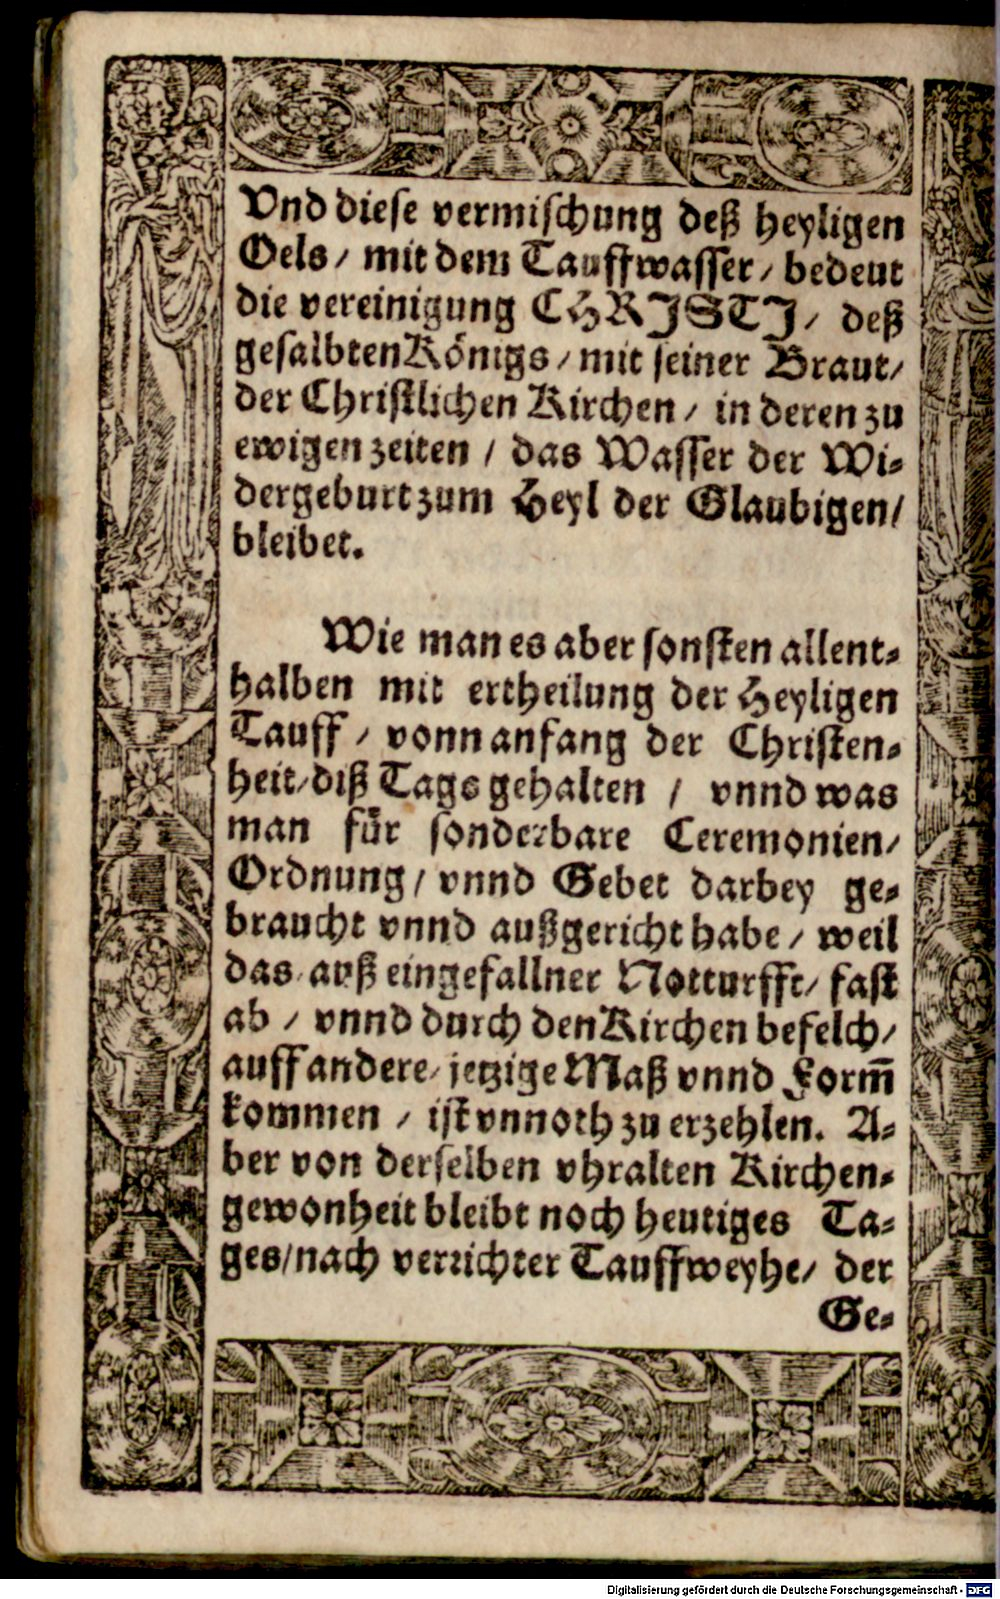 Vnd diese vermischung deß heyligen
Oels / mit dem Tauffwasser / bedeut
die vereinigung CHRJSTJ / deß
gesalbten Königs / mit seiner Braut /
der Christlichen Kirchen / in deren zu
ewigen zeiten / das Wasser der Wi-
dergeburt zum Heyl der Glaubigen /
bleibet.
Wie man es aber sonsten allent-
halben mit ertheilung der Heyligen
Tauff / vonn anfang der Christen-
heit / diß Tags gehalten / vnnd was
man für sonderbare Ceremonien /
Ordnung / vnnd Gebet darbey ge-
braucht vnnd außgericht habe / weil
das auß eingefallner Notturfft / fast
ab / vnnd durch den Kirchen befelch /
auff andere / jetzige Maß vnnd Form̃
kommen / ist vnnoth zu erzehlen. A-
ber von derselben vhralten Kirchen-
gewonheit bleibt noch heutiges Ta-
ges / nach verrichter Tauffweyhe / der
Ge-
Digitalisierung gefördert durch die Deutsche Forschungsgemeinschaft - DFG